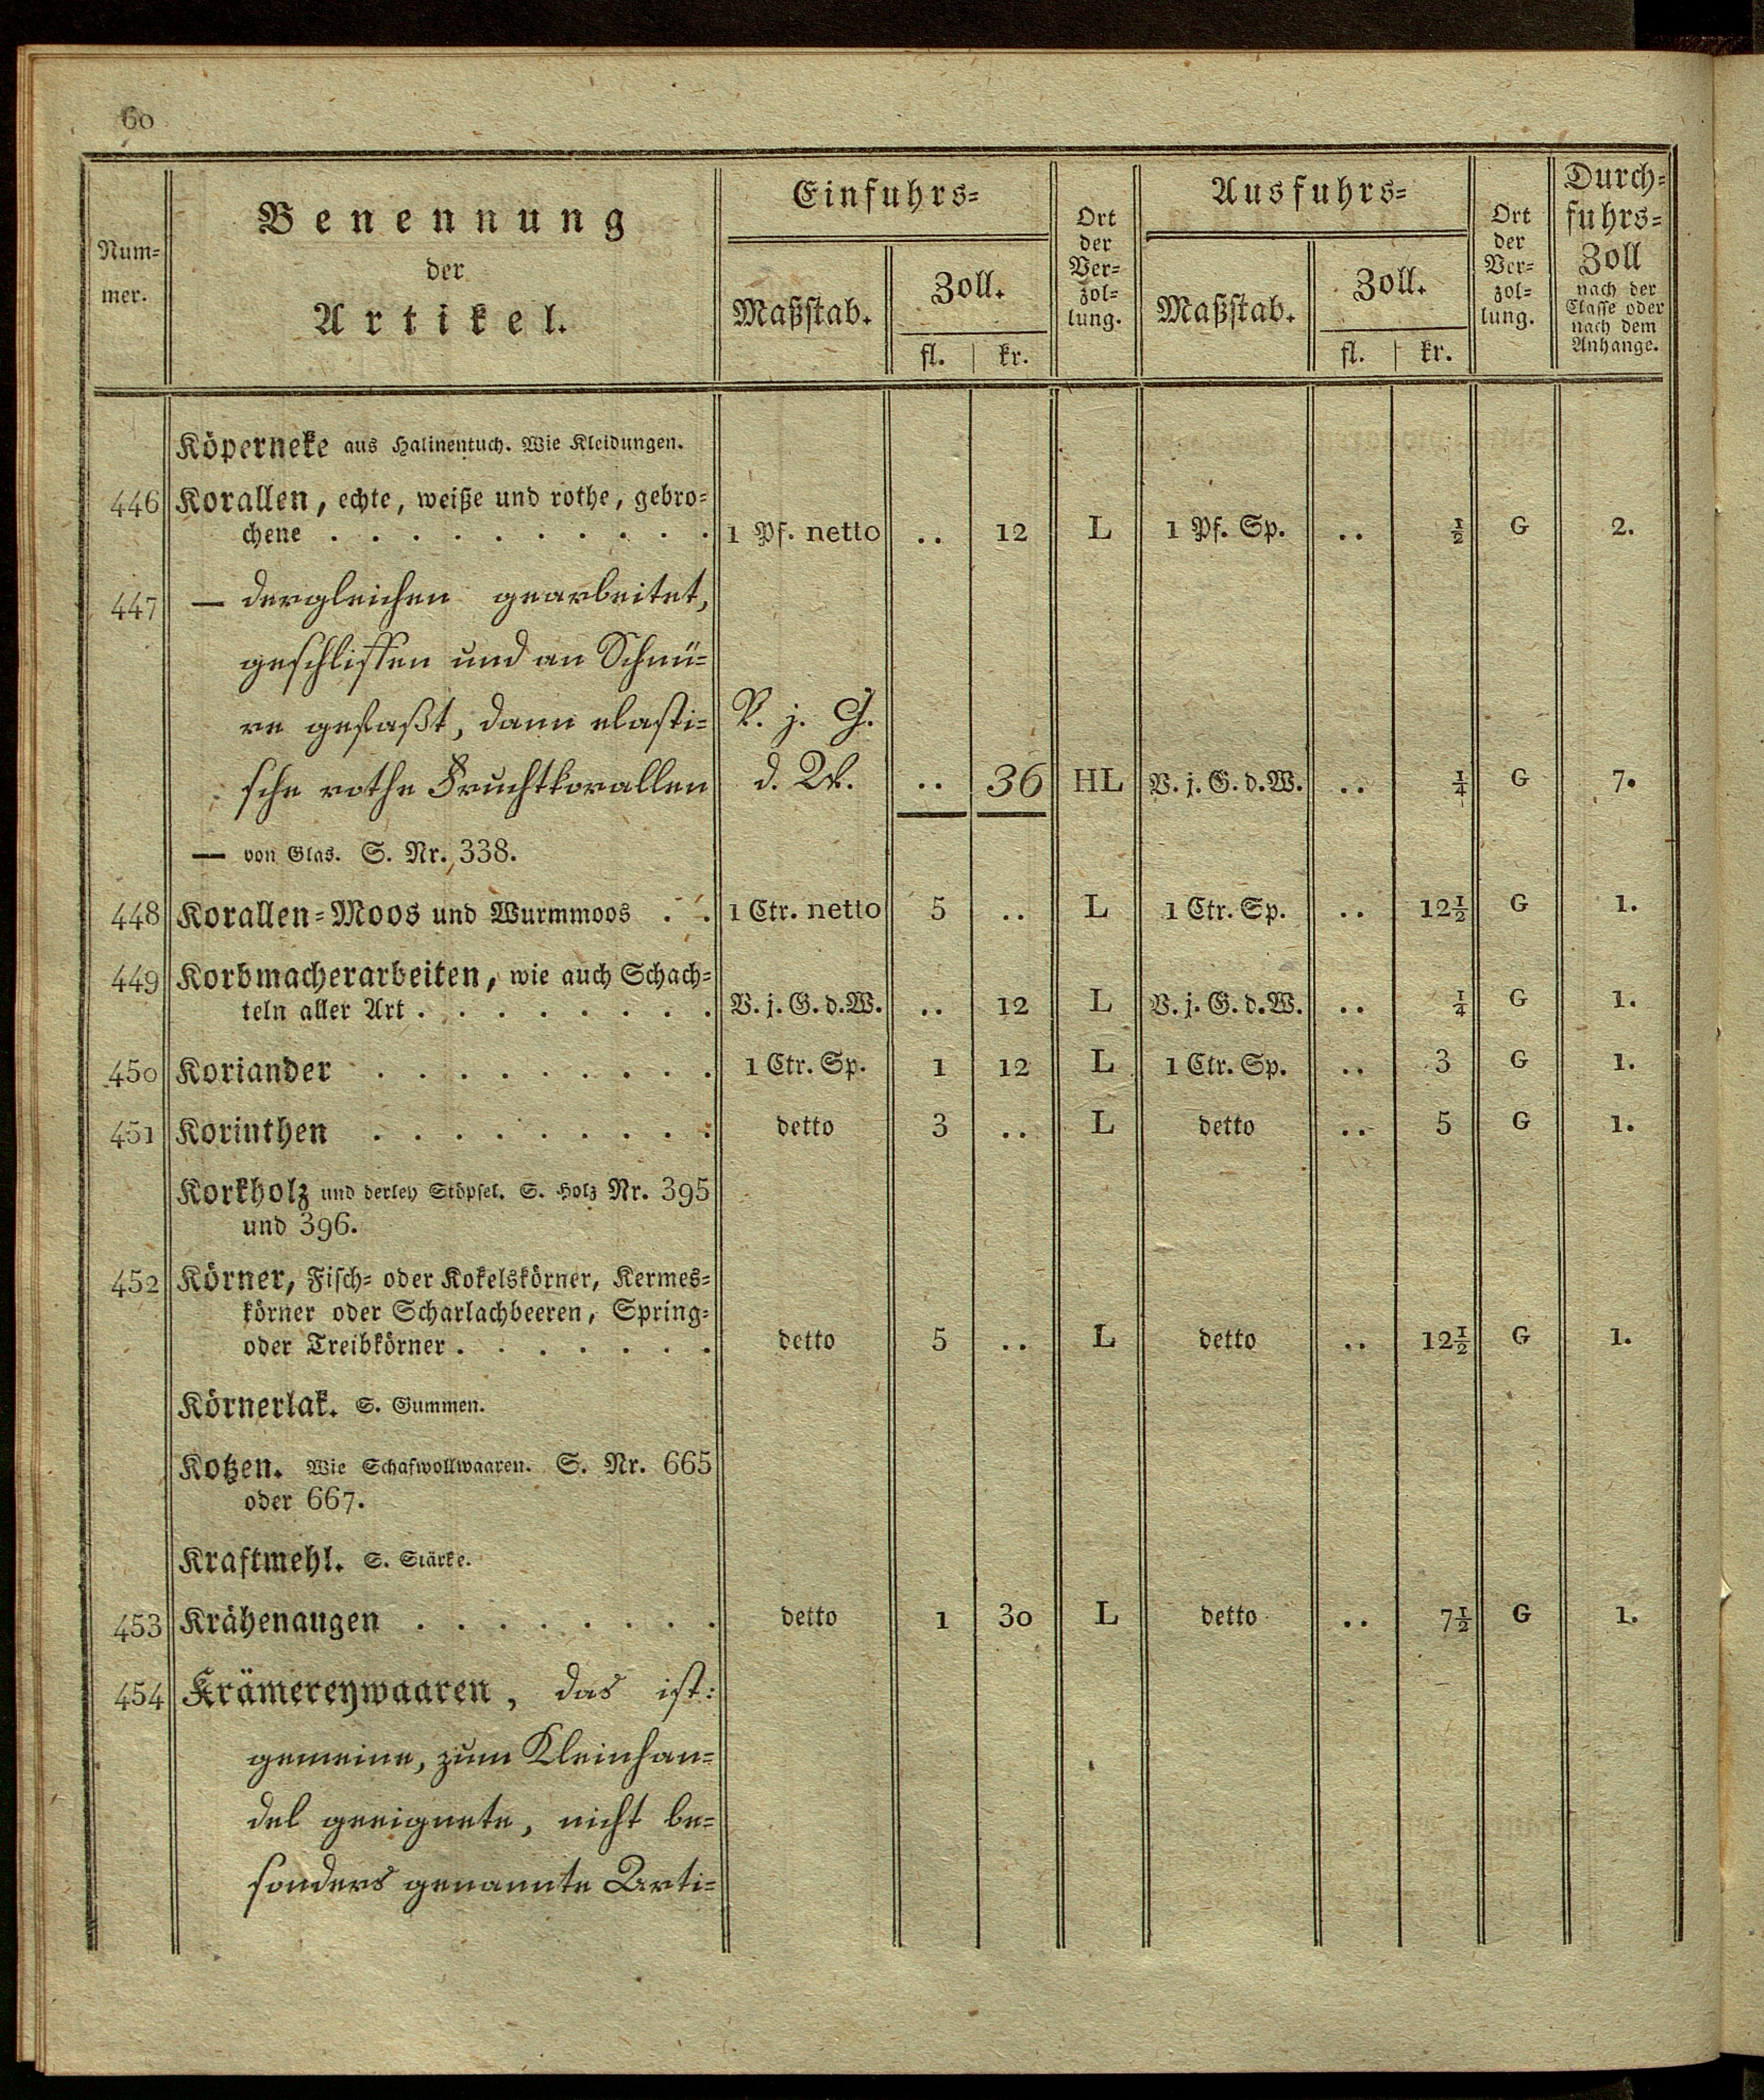 60
Num-
mer.
Benennung
der
Artikel.
Einfuhrs-
Maßstab.
Zoll.
fl. | kr.
Ort
der
Ver-
zol-
lung.
Ausfuhrs-
Maßstab.
Zoll.
fl. | kr.
Ort
der
Ver-
zol-
lung.
Durch-
fuhrs-
Zoll
nach der
Classe oder
nach dem
Anhange.
Köperneke aus Halinentuch. Wie Kleidungen.
446 Korallen, echte, weiße und rothe, gebro-
chene . . . . . . . . . . 1 Pf. netto .. 12 L 1 Pf. Sp. .. ½ G 2.
447 — dergleichen gearbeitet,
geschliffen und an Schnü-
re gefaßt, dann elasti- V. j. G.
sche rothe Fruchtkorallen d. W. .. 36 HL V. j. G. d. W. .. ¼ G 7.
— von Glas. S. Nr. 338.
448 Korallen-Moos und Wurmmoos . . 1 Ctr. netto 5 .. L 1 Ctr. Sp. .. 12½ G 1.
449 Korbmacherarbeiten, wie auch Schach-
teln aller Art . . . . . . . . V. j. G. d. W. .. 12 L V. j. G. d. W. .. ¼ G 1.
450 Koriander . . . . . . . . . 1 Ctr. Sp. 1 12 L 1 Ctr. Sp. .. 3 G 1.
451 Korinthen . . . . . . . . . detto 3 .. L detto .. 5 G 1.
Korkholz und derley Stöpsel. S. Holz Nr. 395
und 396.
452 Körner, Fisch- oder Kokelskörner, Kermes-
körner oder Scharlachbeeren, Spring-
oder Treibkörner . . . . . . . detto 5 .. L detto .. 12½ G 1.
Körnerlak. S. Gummen.
Kotzen. Wie Schafwollwaaren. S. Nr. 665
oder 667.
Kraftmehl. S. Stärke.
453 Krähenaugen . . . . . . . . detto 1 30 L detto .. 7½ G 1.
454 Krämereywaaren, das ist:
gemeine, zum Kleinhan-
del geeignete, nicht be-
sonders genannte Arti-